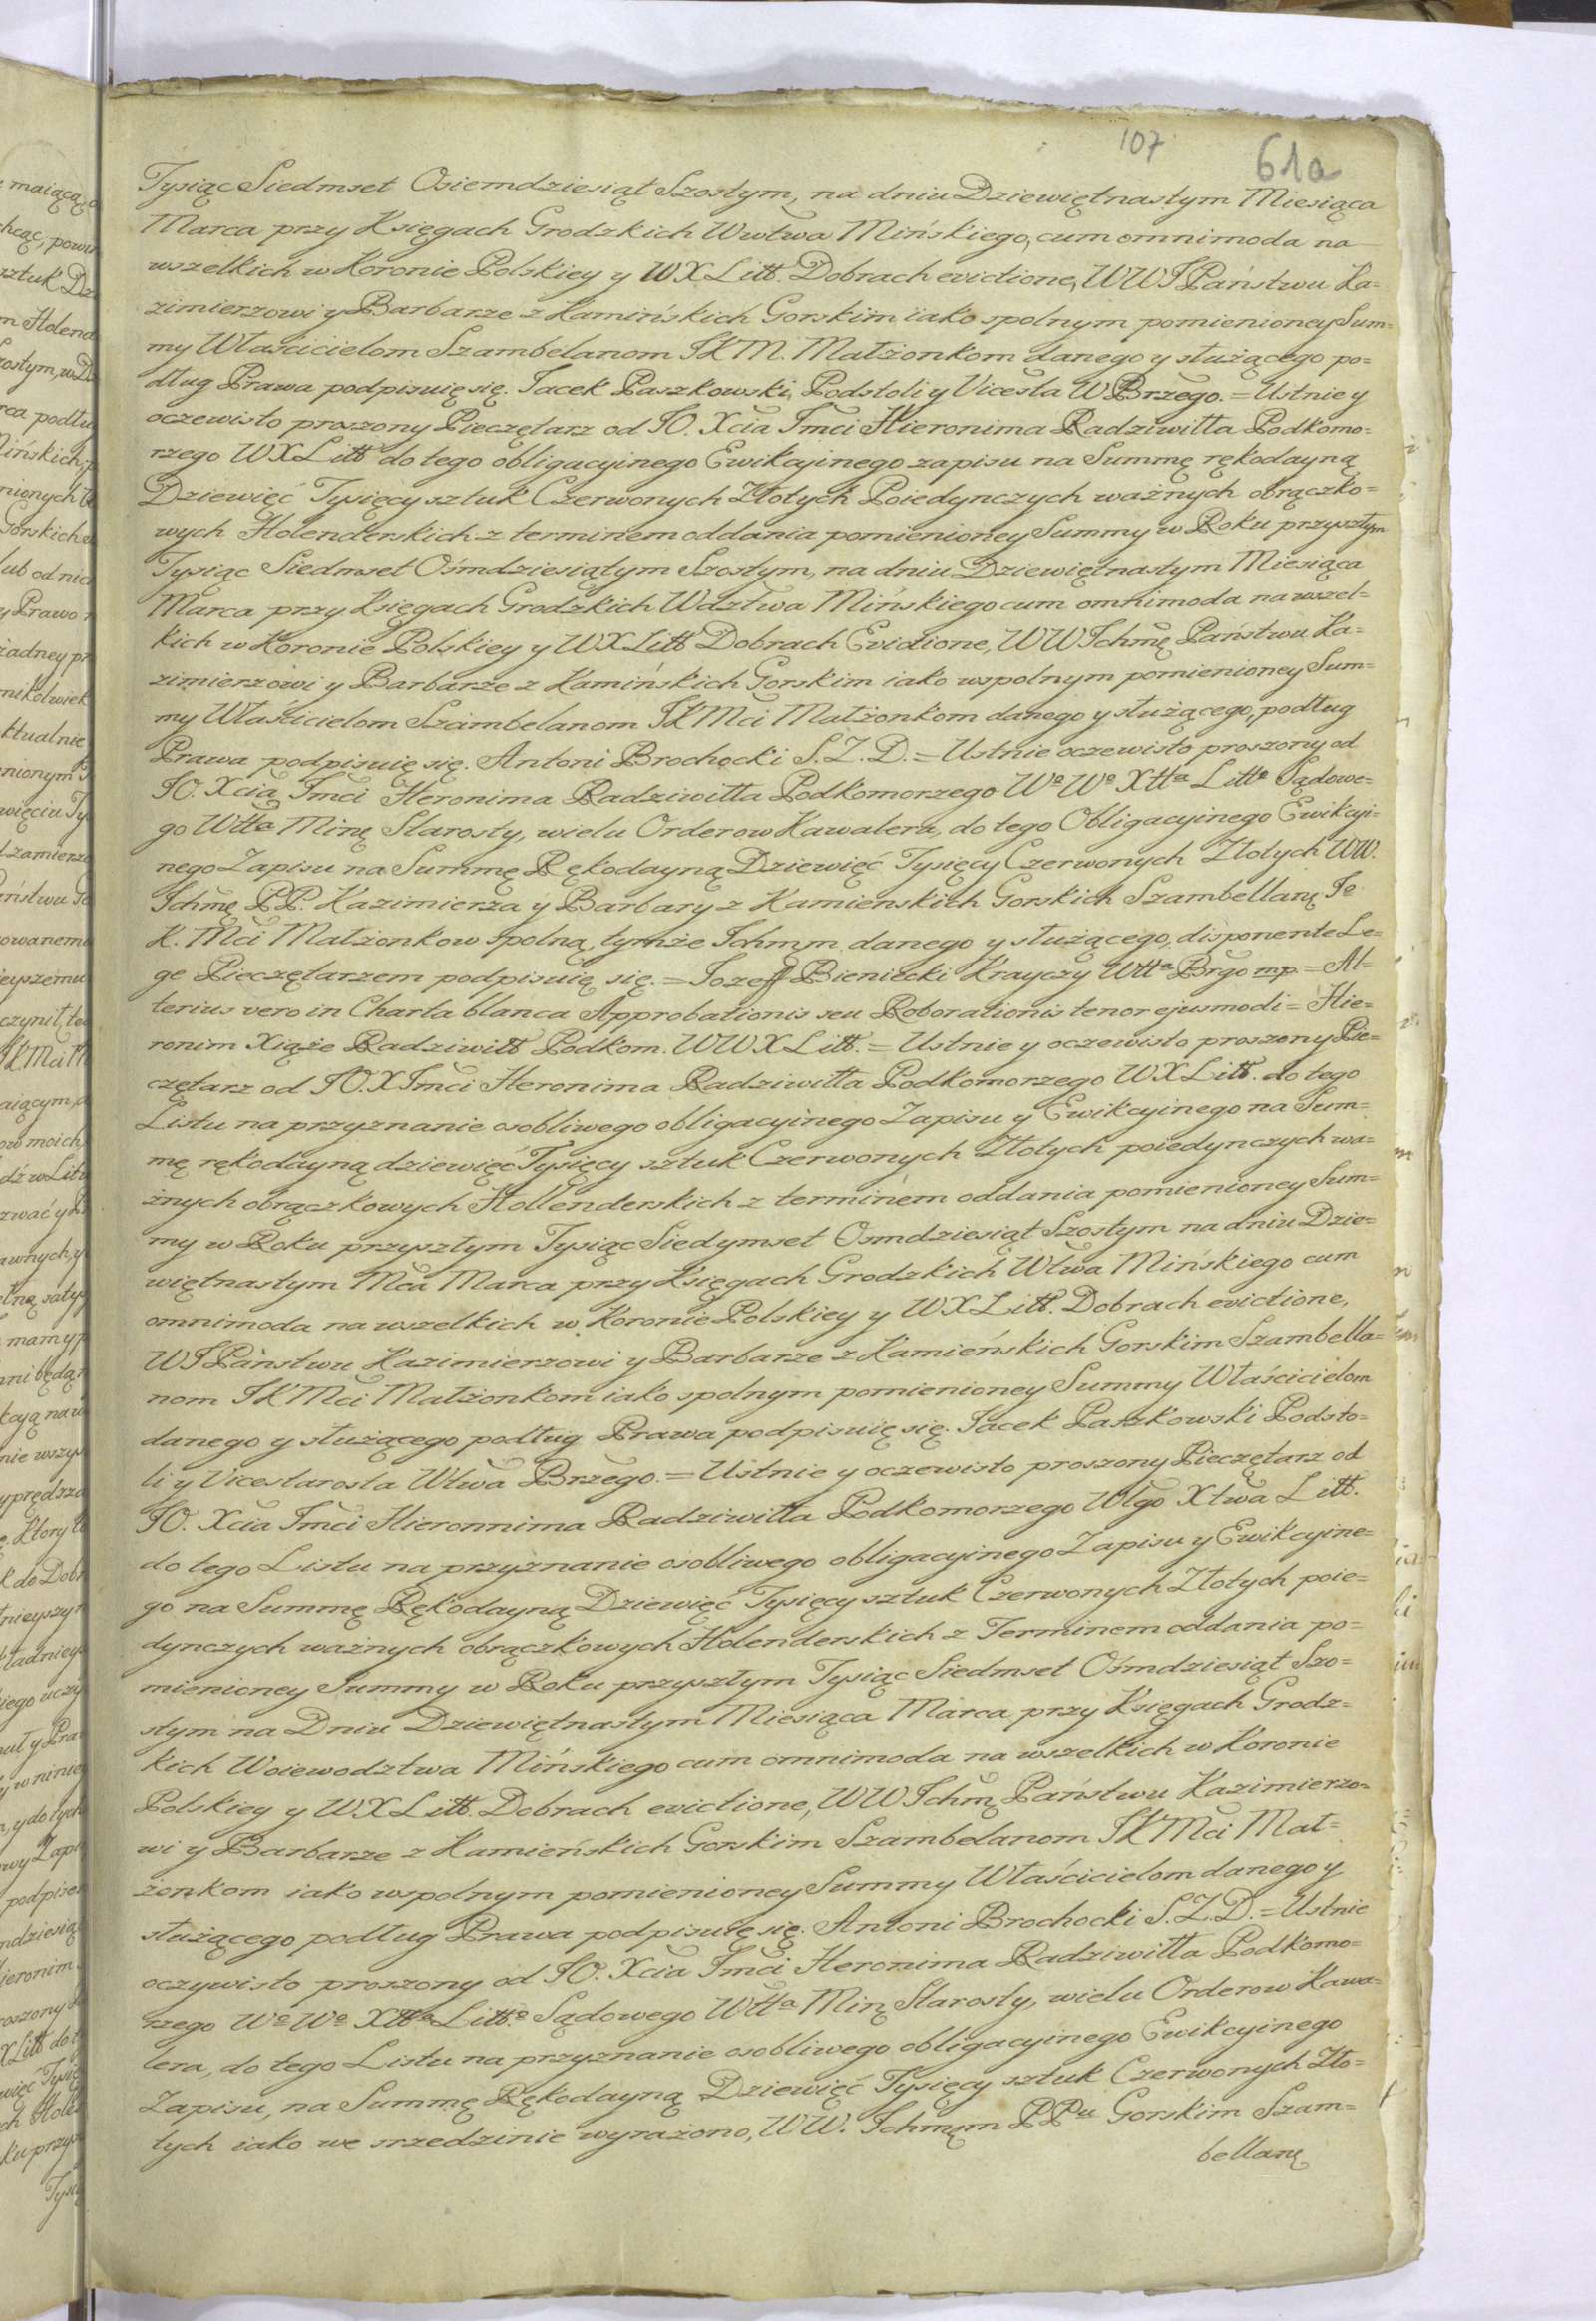 107 61a
Tysiąc Siedmset Osiemdziesiąt Szostym, na dniu Dziewiętnastym Miesiąca
Marca przy Księgach Grodzkich Wwtwa Mińskiego, cum omnimoda na
wszelkich w Koronie Polskiey y WXLitt. Dobrach evictione, WWJPaństwu Ka=
zimierzowi y Barbarze z Kamińskich Gorskim iako spolnym pomienioney Sum=
my Właścicielom Szambelanom JKM. Małżonkom danego y służącego po=
dług Prawa podpisuię się. Jacek Paszkowski Podstoli y Vicesta WBrzego. = Ustnie y
oczewisto proszony Pieczętarz od JO. Xcia Jmci Hieronima Radziwiłła Podkomo=
rzego WXLitt do tego obligacyinego Ewikcyinego zapisu na Summę rękodayną
Dziewięć Tysięcy sztuk Czerwonych Złotych Poiedynczych ważnych obrączko=
wych Holenderskich z terminem oddania pomienioney Summy w Roku przyszłym
Tysiąc Siedmset Ośmdziesiątym Szostym, na dniu Dziewiętnastym Miesiąca
Marca przy Księgach Grodzkich Wdztwa Mińskiego cum omnimoda na wszel=
kich w Koronie Polskiey y WXLitt Dobrach Evictione, WWJchmę Państwu Ka=
zimierzowi y Barbarze z Kamińskich Gorskim iako wspolnym pomienioney Sum=
my Właścicielom Szambelanom JKMci Małżonkom danego y służącego, podług
Prawa podpisuię się. Antoni Brochocki S.Z.D. = Ustnie oczewisto proszony od
JO. Xcia Jmci Heronima Radziwiłła Podkomorzego Wo Wo Xtta Litto Sądowe=
go Wtta Minę Starosty, wielu Orderow Kawalera, do tego Obligacyinego Ewikcyi=
nego Zapisu na Summę Rękodayną Dziewięć Tysięcy Czerwonych Złotych WW.
Jchmę PP. Kazimierza y Barbary z Kamienskich Gorskich Szambellanę Jo
K. Mci Małżonkow spolną, tymże Jchmm danego y służącego, disponente Le=
ge Pieczętarzem podpisuię się. = Jozeff Bieniecki Krayczy Wtta Brgo mp. = Al=
terius vero in Charta blanca Approbationis seu Roborationis tenor ejusmodi = Hie=
ronim Xiąże Radziwiłł Podkom. WWXLitt. = Ustnie y oczewisto proszony Pie=
czętarz od JO.XJmci Heronima Radziwiłła Podkomorzego WXLitt. do tego
Listu na przyznanie osobliwego obligacyinego Zapisu y Ewikcyinego na Sum=
mę rękodayną dziewięć Tysięcy sztuk Czerwonych Złotych poiedynczych wa=
żnych obrączkowych Hollenderskich z terminem oddania pomienioney Sum=
my w Roku przyszłym Tysiąc Siedymset Osmdziesiąt Szostym na dniu Dzie=
więtnastym Mca Marca przy Księgach Grodzkich Wtwa Mińskiego cum
omnimoda na wszelkich w Koronie Polskiey y WXLitt. Dobrach evictione,
WJPaństwu Kazimierzowi y Barbarze z Kamieńskich Gorskim Szambella=
nom JKMci Małżonkom iako spolnym pomienioney Summy Właścicielom
danego y służącego podług Prawa podpisuię się. Jacek Paszkowski Podsto=
li y Vicestarosta Wtwa Brzego. = Ustnie y oczewisto proszony Pieczętarz od
JO. Xcia Jmci Hieronnima Radziwiłła Podkomorzego Wlgo Xtwa Litt.
do tego Listu na przyznanie osobliwego obligacyinego Zapisu y Ewikcyine=
go na Summę Rękodayną Dziewięć Tysięcy sztuk Czerwonych Złotych poie=
dynczych ważnych obrączkowych Holenderskich z Terminem oddania po=
mienioney Summy w Roku przyszłym Tysiąc Siedmset Ośmdziesiąt Szo=
stym na Dniu Dziewiętnastym Miesiąca Marca przy Księgach Grodz=
kich Woiewodztwa Mińskiego cum omnimoda na wszelkich w Koronie
Polskiey y WXLitt. Dobrach evictione, WWJchmę Państwu Kazimierzo=
wi y Barbarze z Kamieńskich Gorskim Szambelanom JKMci Mał=
żonkom iako wspolnym pomienioney Summy Właścicielom danego y
służącego podług Prawa podpisuię się. Antoni Brochocki S.Z.D. = Ustnie
oczywisto proszony od JO. Xcia Jmci Heronima Radziwiłła Podkomo=
rzego Wo Wo Xtta Litto Sądowego Wtta Minę Starosty, wielu Orderow Kawa=
lera, do tego Listu na przyznanie osobliwego obligacyinego Ewikcyinego
Zapisu, na Summę Rękodayną Dziewięć Tysięcy sztuk Czerwonych Zło=
tych iako we srzedzinie wyrażono, WW. Jchmęm PPu Gorskim Szam=
bellanę